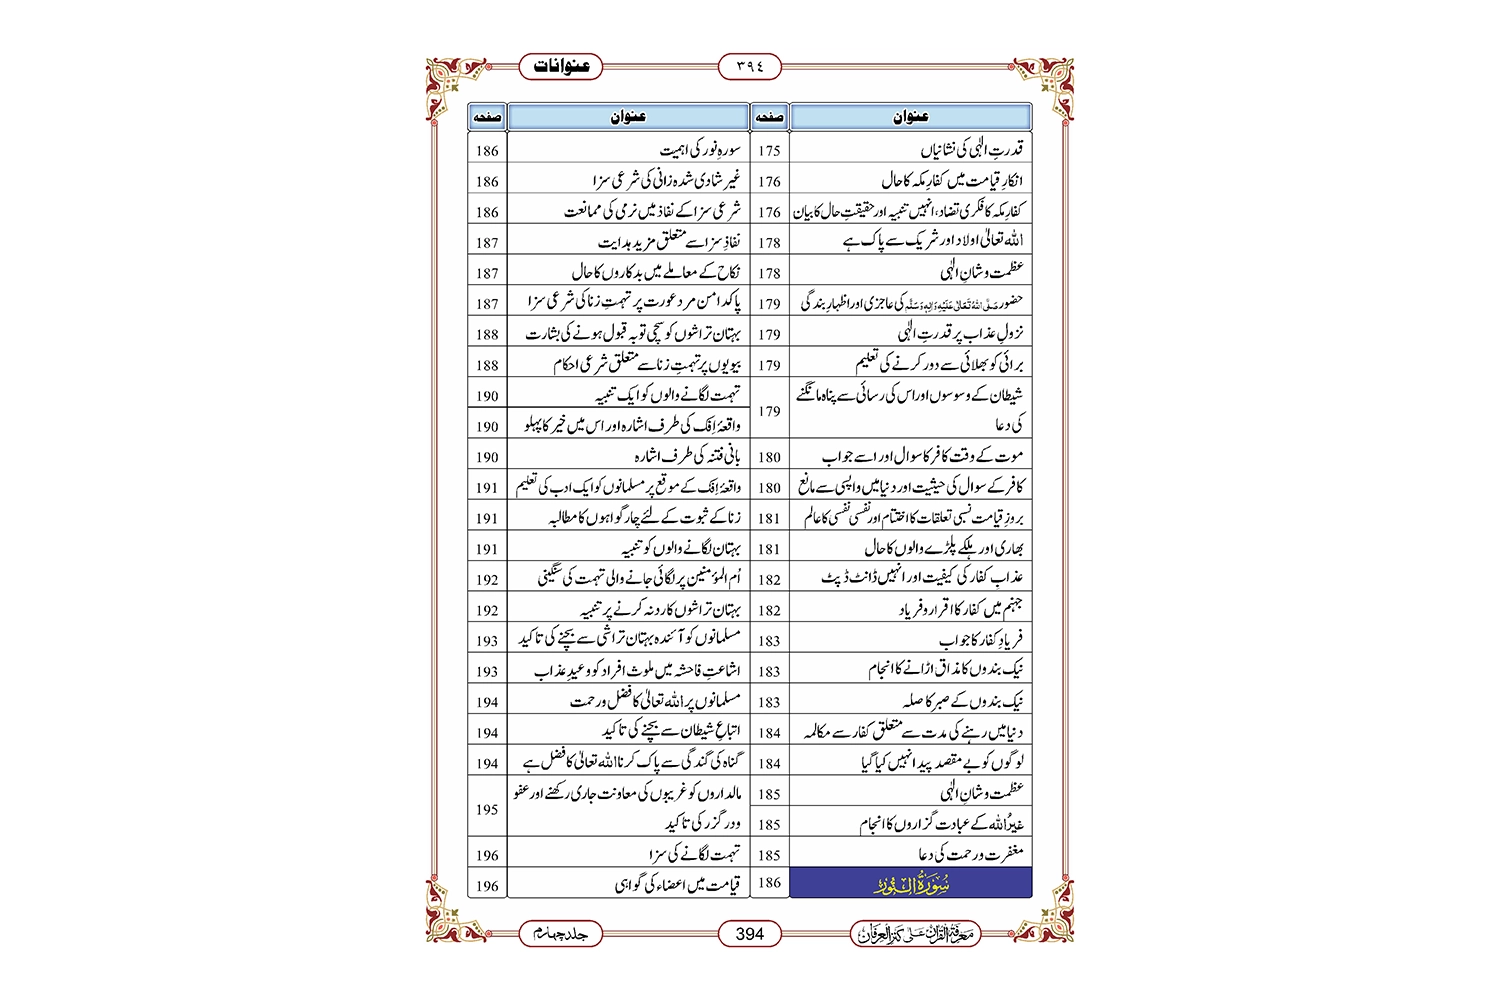 عنوانات
٣٩٤
عنوان صفحہ
قدرتِ الٰہی کی نشانیاں 175
انکارِ قیامت میں کفارِ مکہ کا حال 176
کفارِ مکہ کا فکری تضاد، انہیں تنبیہ اور حقیقتِ حال کا بیان 176
اللہ تعالیٰ اولاد اور شریک سے پاک ہے 178
عظمت و شانِ الٰہی 178
حضور صَلَّی اللہُ تَعَالٰی عَلَیْہِ وَاٰلِہٖ وَسَلَّم کی عاجزی اور اظہارِ بندگی 179
نزولِ عذاب پر قدرتِ الٰہی 179
برائی کو بھلائی سے دور کرنے کی تعلیم 179
شیطان کے وسوسوں اور اس کی رسائی سے پناہ مانگنے
کی دعا 179
موت کے وقت کافر کا سوال اور اسے جواب 180
کافر کے سوال کی حیثیت اور دنیا میں واپسی سے مانع 180
بروزِ قیامت نسبی تعلقات کا اختتام اور نفسی نفسی کا عالم 181
بھاری اور ہلکے پلڑے والوں کا حال 181
عذابِ کفار کی کیفیت اور انہیں ڈانٹ ڈپٹ 182
جہنم میں کفار کا اقرار و فریاد 182
فریادِ کفار کا جواب 183
نیک بندوں کا مذاق اڑانے کا انجام 183
نیک بندوں کے صبر کا صلہ 183
دنیا میں رہنے کی مدت سے متعلق کفار سے مکالمہ 184
لوگوں کو بے مقصد پیدا نہیں کیا گیا 184
عظمت و شانِ الٰہی 185
غیرُ اللہ کے عبادت گزاروں کا انجام 185
مغفرت و رحمت کی دعا 185
سُوْرَۃُ النُّوْر 186
عنوان صفحہ
سورہِ نور کی اہمیت 186
غیر شادی شدہ زانی کی شرعی سزا 186
شرعی سزا کے نفاذ میں نرمی کی ممانعت 186
نفاذِ سزا سے متعلق مزید ہدایت 187
نکاح کے معاملے میں بدکاروں کا حال 187
پاکدامن مرد عورت پر تہمتِ زنا کی شرعی سزا 187
بہتان تراشوں کو سچی توبہ قبول ہونے کی بشارت 188
بیویوں پر تہمتِ زنا سے متعلق شرعی احکام 188
تہمت لگانے والوں کو ایک تنبیہ 190
واقعۂ اِفک کی طرف اشارہ اور اس میں خیر کا پہلو 190
بانیٔ فتنہ کی طرف اشارہ 190
واقعۂ اِفک کے موقع پر مسلمانوں کو ایک ادب کی تعلیم 191
زنا کے ثبوت کے لئے چار گواہوں کا مطالبہ 191
بہتان لگانے والوں کو تنبیہ 191
اُم المؤمنین پر لگائی جانے والی تہمت کی سنگینی 192
بہتان تراشوں کا رد نہ کرنے پر تنبیہ 192
مسلمانوں کو آئندہ بہتان تراشی سے بچنے کی تاکید 193
اشاعتِ فاحشہ میں ملوث افراد کو وعیدِ عذاب 193
مسلمانوں پر اللہ تعالیٰ کا فضل و رحمت 194
اتباعِ شیطان سے بچنے کی تاکید 194
گناہ کی گندگی سے پاک کرنا اللہ تعالیٰ کا فضل ہے 194
مالداروں کو غریبوں کی معاونت جاری رکھنے اور عفو
و درگزر کی تاکید 195
تہمت لگانے کی سزا 196
قیامت میں اعضاء کی گواہی 196
معرفۃ القرآن علی کنز العرفان
394
جلد چہارم